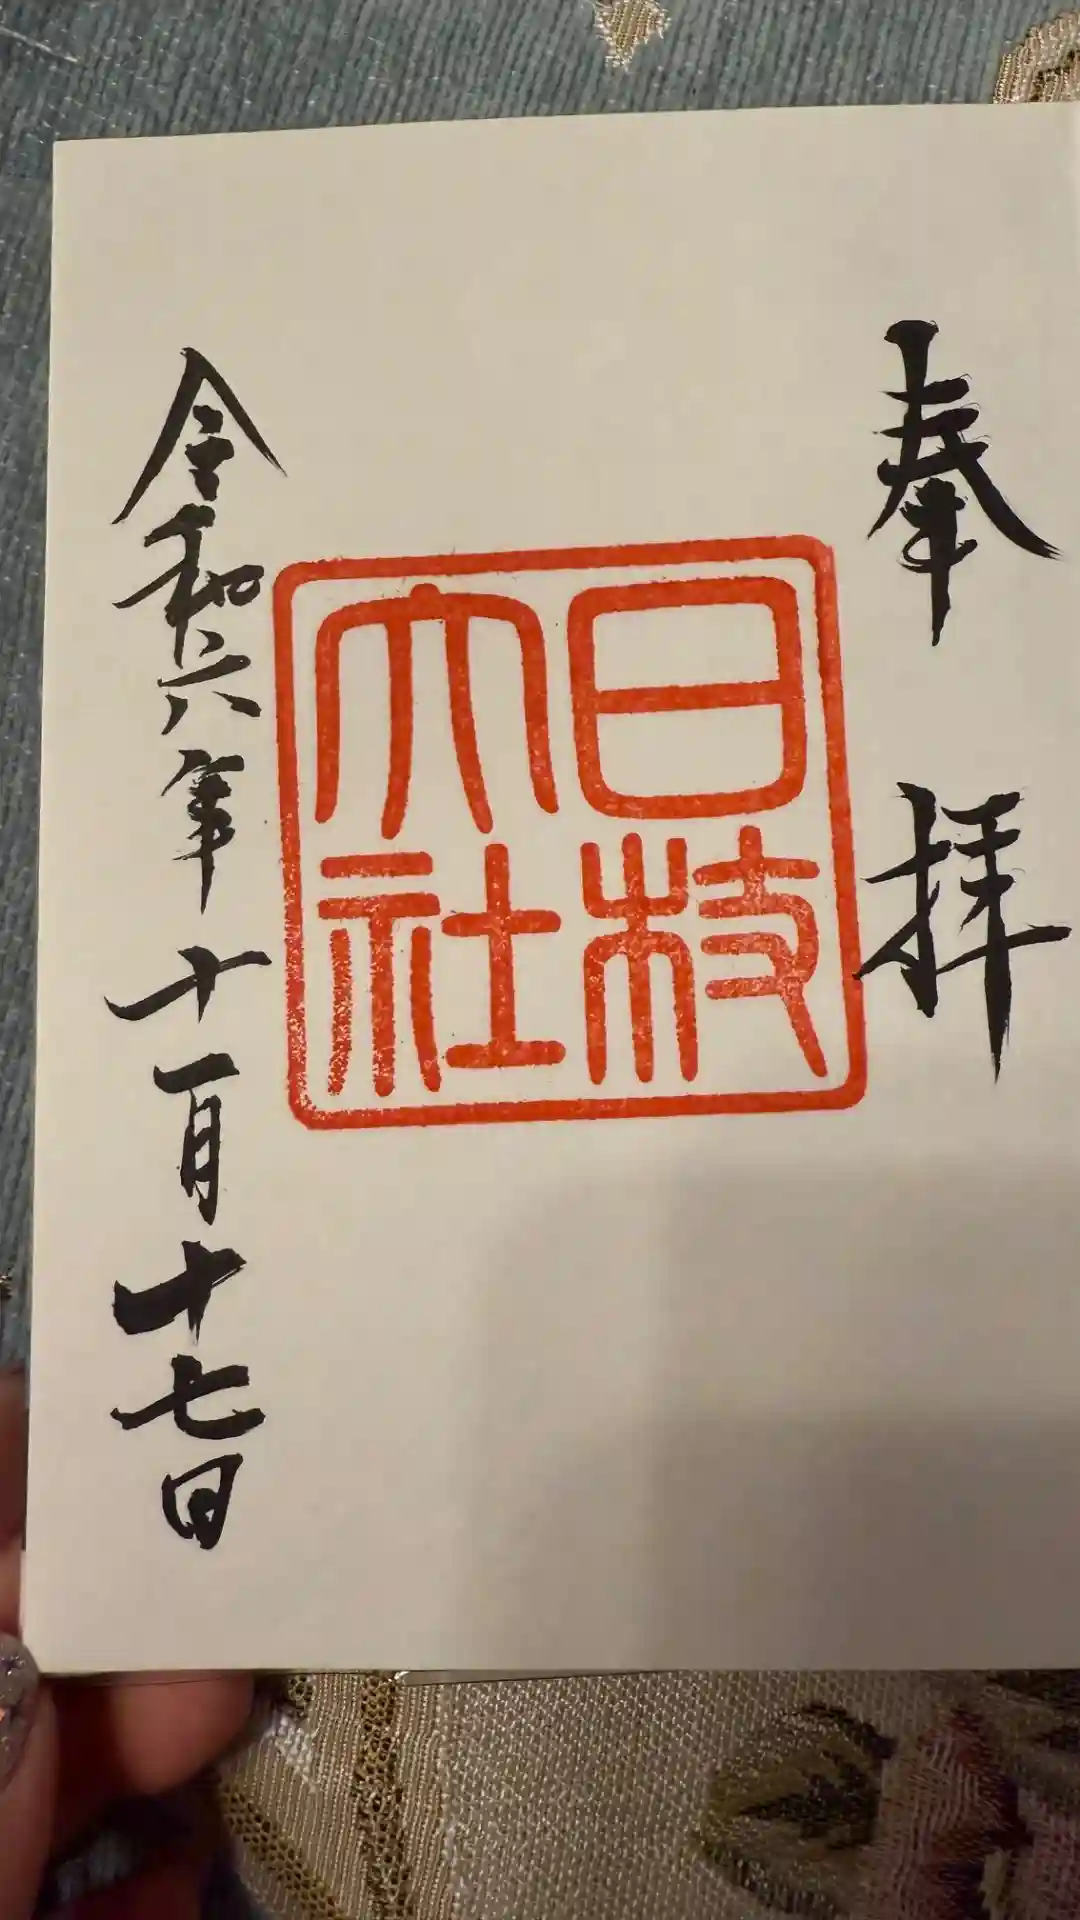 奉拝
日枝
大社
令和六年十一月十七日